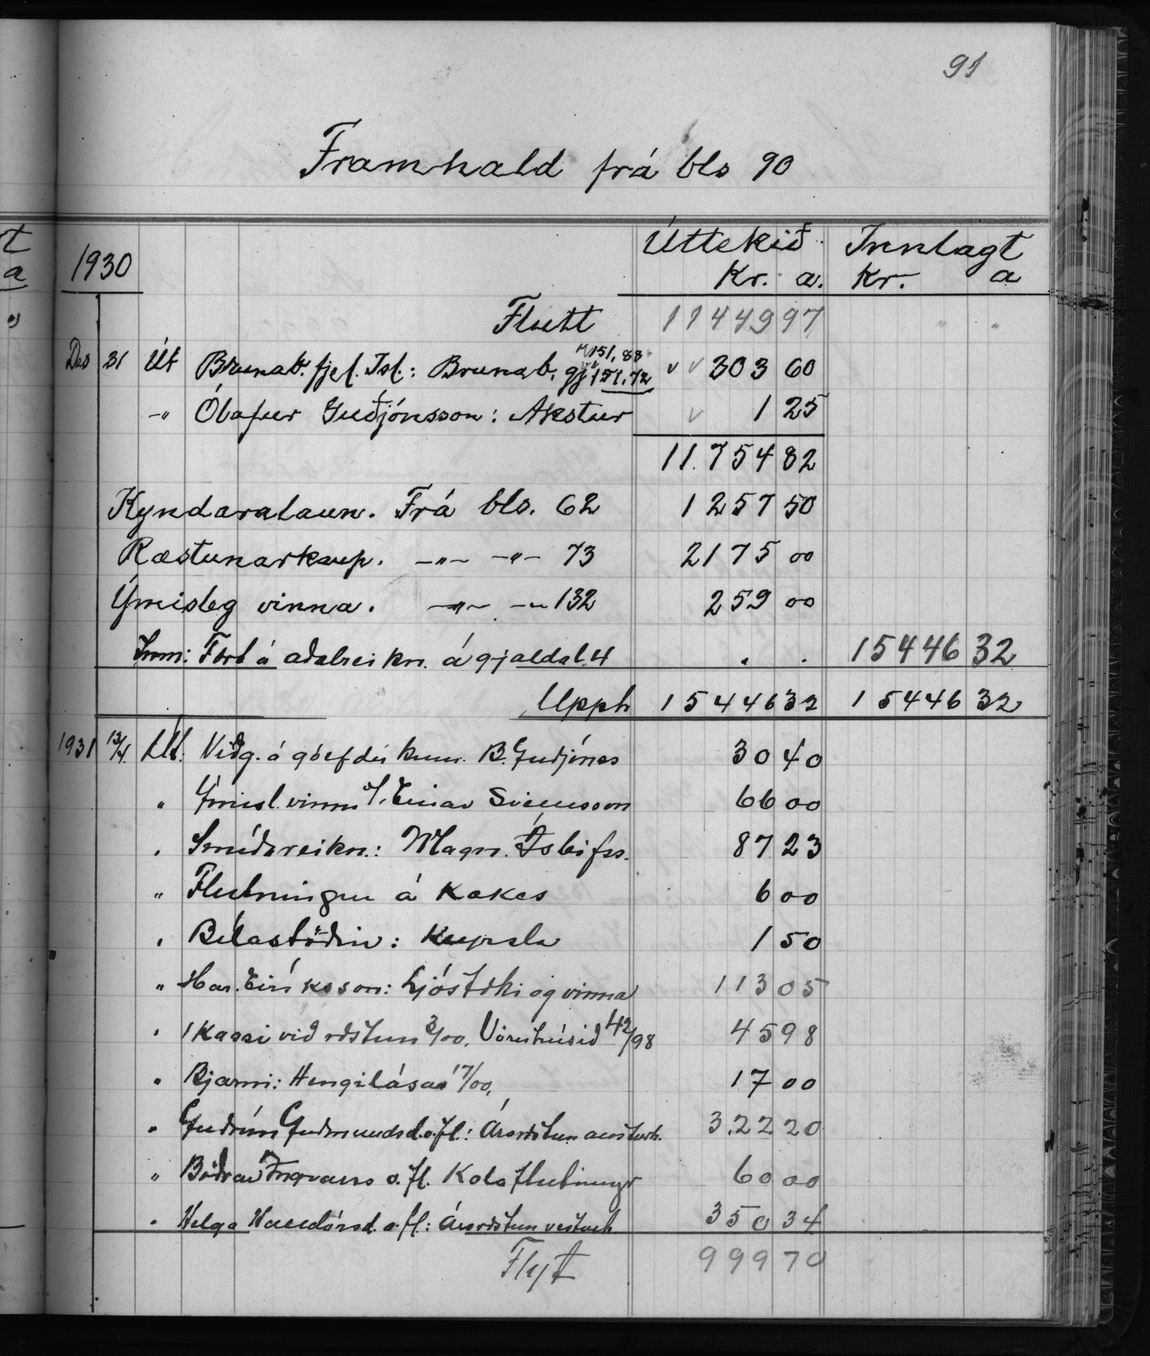 91
Framhald frá bls 90
1930 Úttekið Innlagt
Kr. a. Kr. a
Flutt 11449 97
Des 31 Út Brunab.fjel. Ísl.: Brunab.gj. 151,88 151,72 303 60
-"- Ólafur Guðjónsson: Akstur 1 25
11.754 82
Kyndaralaun. Frá bls. 62 1257 50
Ræstunarkaup. -"- -"- 73 2175 00
Ýmisleg vinna. -"- -"- 132 259 00
Inn: Fært á aðalreikn. á gjaldal. 4 . . 15446 32
Upph 15446 32 15446 32
1931 Út. Viðg. á gólfdúkum B. Guðjónss 30 40
" Ýmisl. vinna Einar Sveinsson 66 00
" Smíðareikn.: Magn. Ísleifss. 87 23
" Flutningur á Kokes 6 00
" Bílastöðin: Keyrsla 1 50
" Har. Eiríksson: Ljóstæki og vinna 113 05
" 1 Kassi við ræstun 3/00, Vöruhúsið 42/98 45 98
" Bjarni: Hengilásar 17/00, 17 00
" Guðrún Guðmundsd. o.fl.: Ársræstun austurb. 3.22 20
" Böðvar Ingvars o.fl. Kolaflutningur 60 00
" Helga Halldórsd. o.fl: Ársræstun vesturb. 350 34
Flyt 999 70